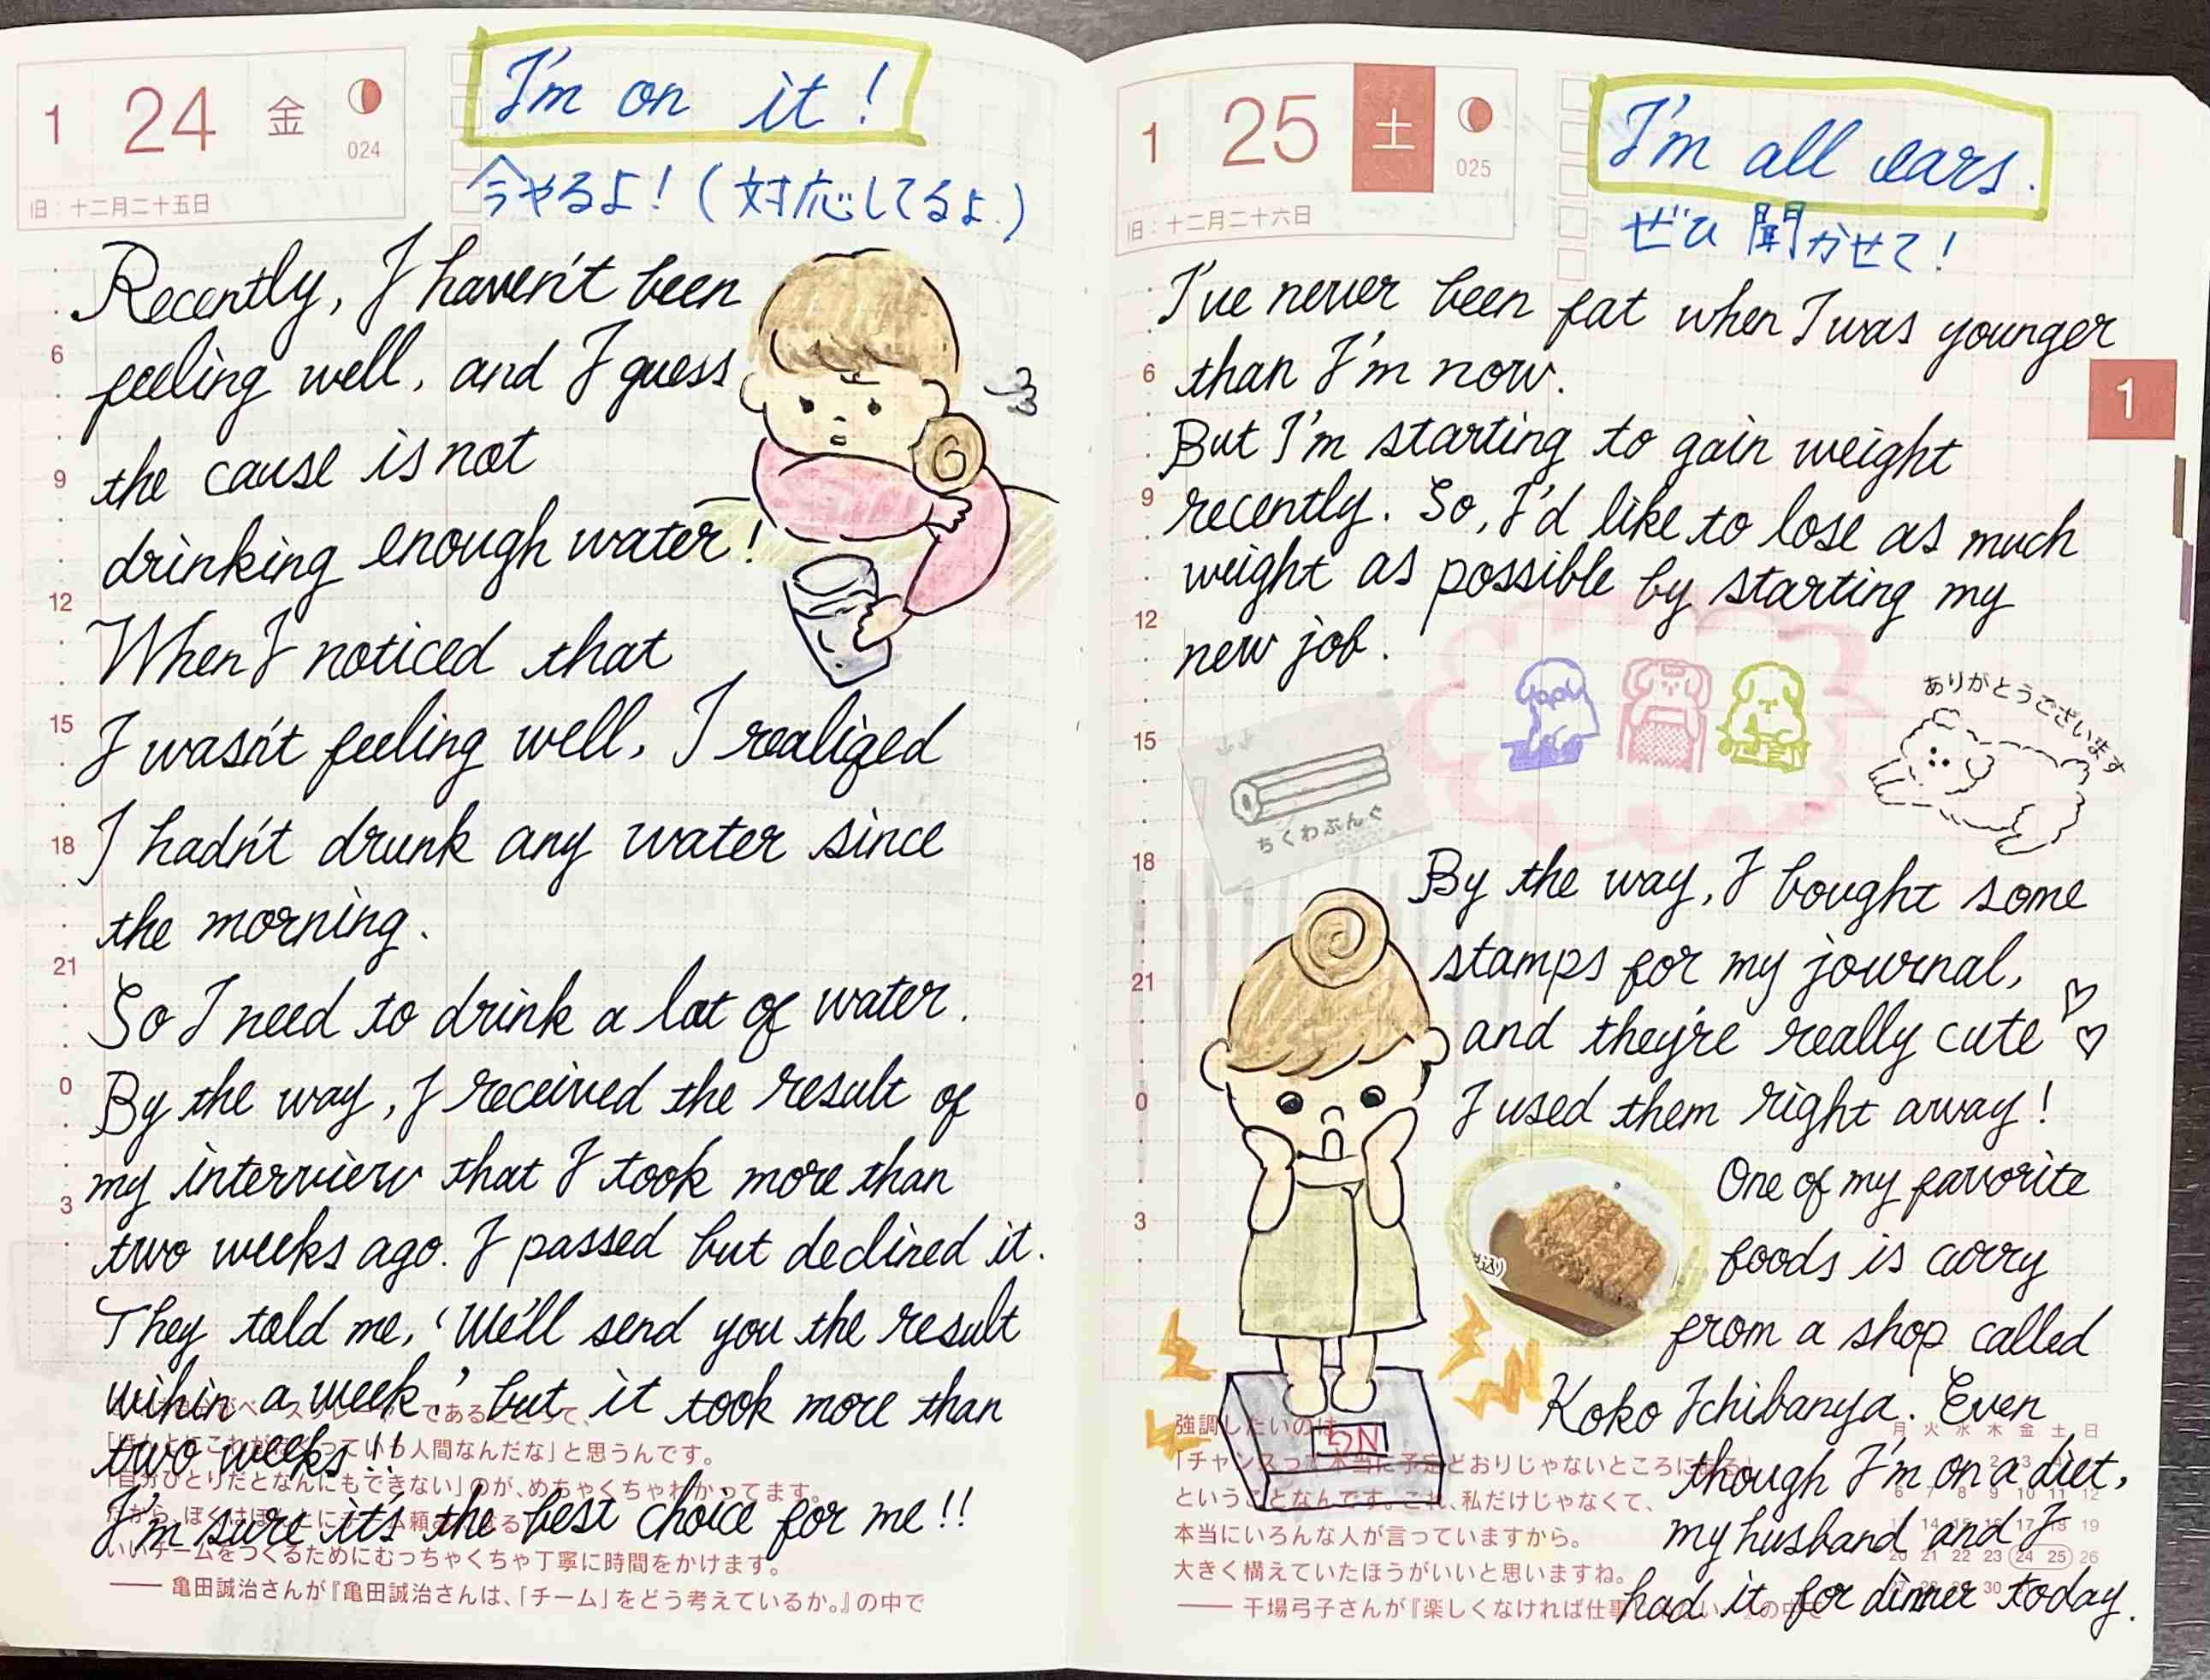 1 24 金
024
旧:十二月二十五日
I'm on it!
今やるよ!(対応してるよ.)
Recently, I haven't been
feeling well, and I guess
the cause is not
drinking enough water!
When I noticed that
I wasn't feeling well, I realized
I hadn't drunk any water since
the morning.
So I need to drink a lot of water.
By the way, I received the result of
my interview that I took more than
two weeks ago. I passed but declined it.
They told me, 'We'll send you the result
wihin a week.' but it took more than
two weeks!!
I'm sure it's the best choice for me!!
6
9
12
15
18
21
0
3
人間なんだな」と思うんです。
「自分ひとりだとなんにもできない」のが、めちゃくちゃわかってます。
いいチームをつくるためにむっちゃくちゃ丁寧に時間をかけます。
── 亀田誠治さんが『亀田誠治さんは、「チーム」をどう考えているか。』の中で
1 25 土
025
旧:十二月二十六日
I'm all ears.
ぜひ聞かせて!
1
I've never been fat when I was younger
than I'm now.
But I'm starting to gain weight
recently. So, I'd like to lose as much
weight as possible by starting my
new job.
ありがとうございます
ちくわぶんぐ
By the way, I bought some
stamps for my journal,
and they're really cute
I used them right away!
One of my favorite
foods is curry
from a shop called
Koko Ichibanya. Even
though I'm on a diet,
my husband and I
had it for dinner today.
6
9
12
15
18
21
0
3
NG
強調したいのは、
「チャンスって本当に予定どおりじゃないところに
ということなんです。これ、私だけじゃなくて、
本当にいろんな人が言っていますから。
大きく構えていたほうがいいと思いますね。
── 干場弓子さんが『楽しくなければ仕事
月 火 水 木 金 土 日
6 7 8 9 10 11 12
14 15 16 17 18 19
20 21 22 23 24 25 26
30